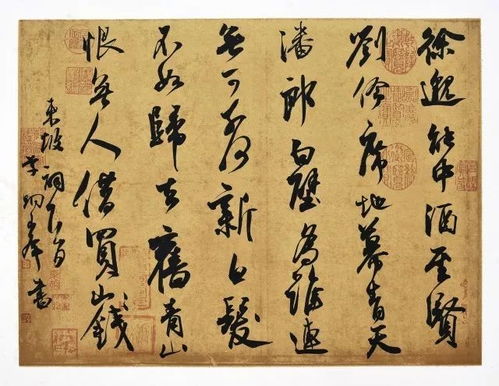 徐邈能中酒聖賢
劉伶席地幕青天
潘郎白璧為誰連
無可奈何新白髮
不如歸去舊青山
恨無人借買山錢
東坡詞
李書